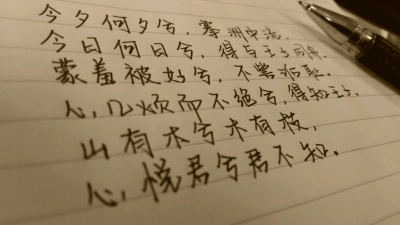 今夕何夕兮，搴洲中流。
今日何日兮，得与王子同舟。
蒙羞被好兮，不訾诟耻。
心几烦而不绝兮，得知王子。
山有木兮木有枝，
心悦君兮君不知。